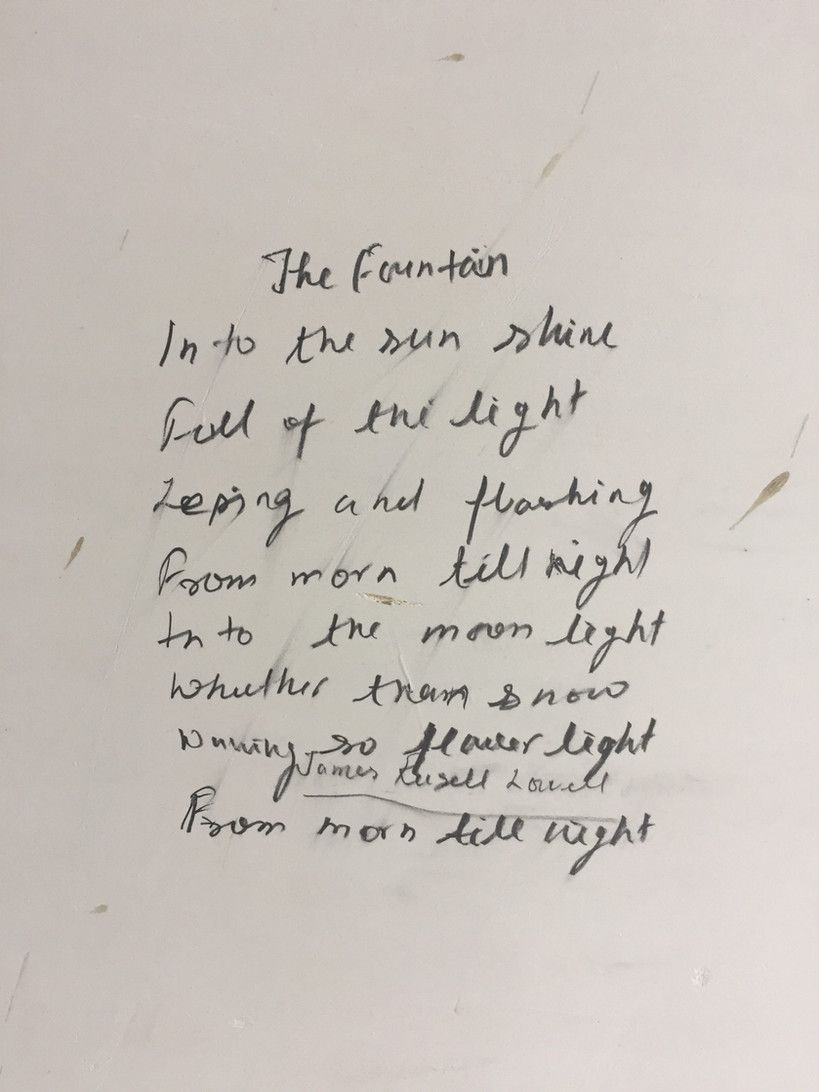 The Fountain
In to the sun shine
Full of the light
Leeping and flashing
From morn till night
In to the moon light
Whuther than snow
Wuving so flower light
James Rusell Lowell
From morn till night